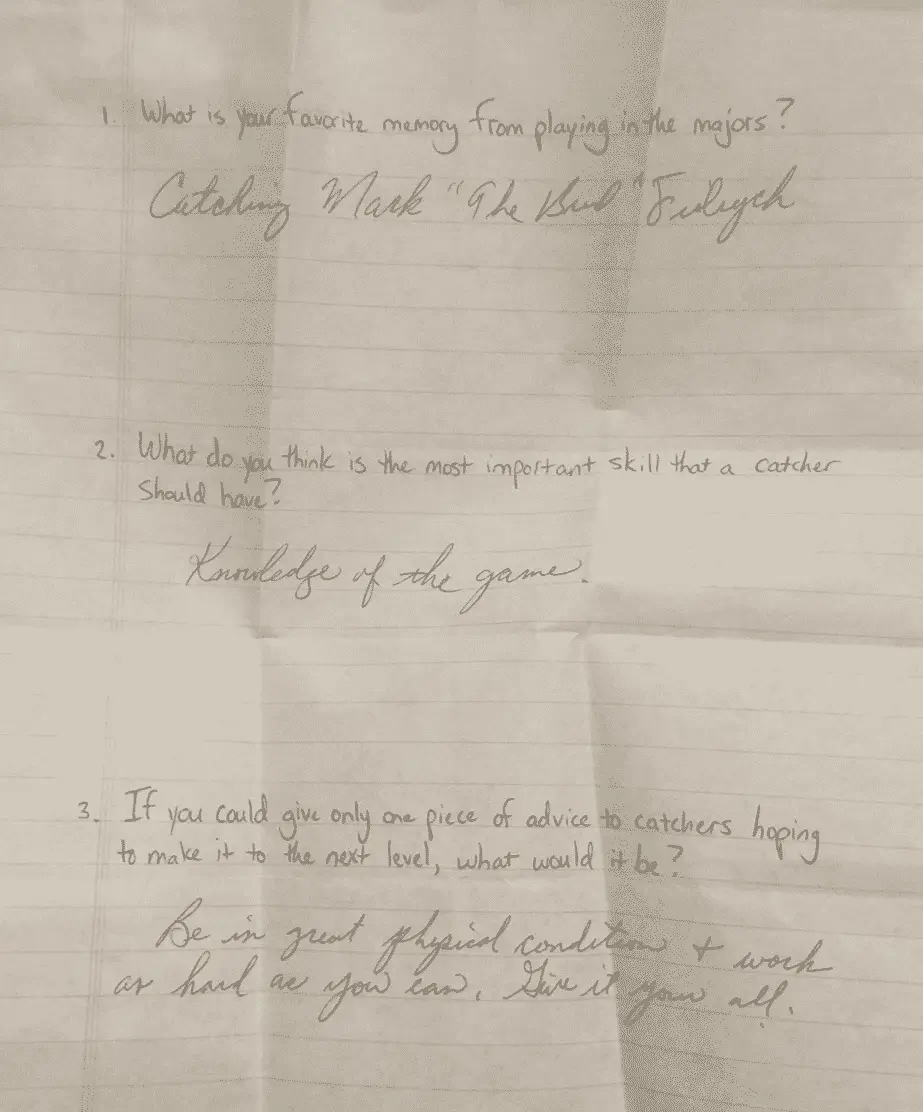 1. What is your favorite memory from playing in the majors?
Catching Mark "The Bird" Fidrych
2. What do you think is the most important skill that a catcher
should have?
Knowledge of the game.
3. If you could give only one piece of advice to catchers hoping
to make it to the next level, what would it be?
Be in great physical condition + work
as hard as you can. Give it your all.